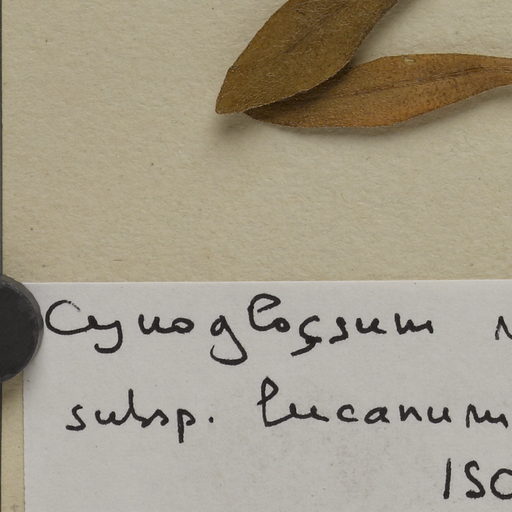 Cynoglossum
subsp. lucanum
ISO